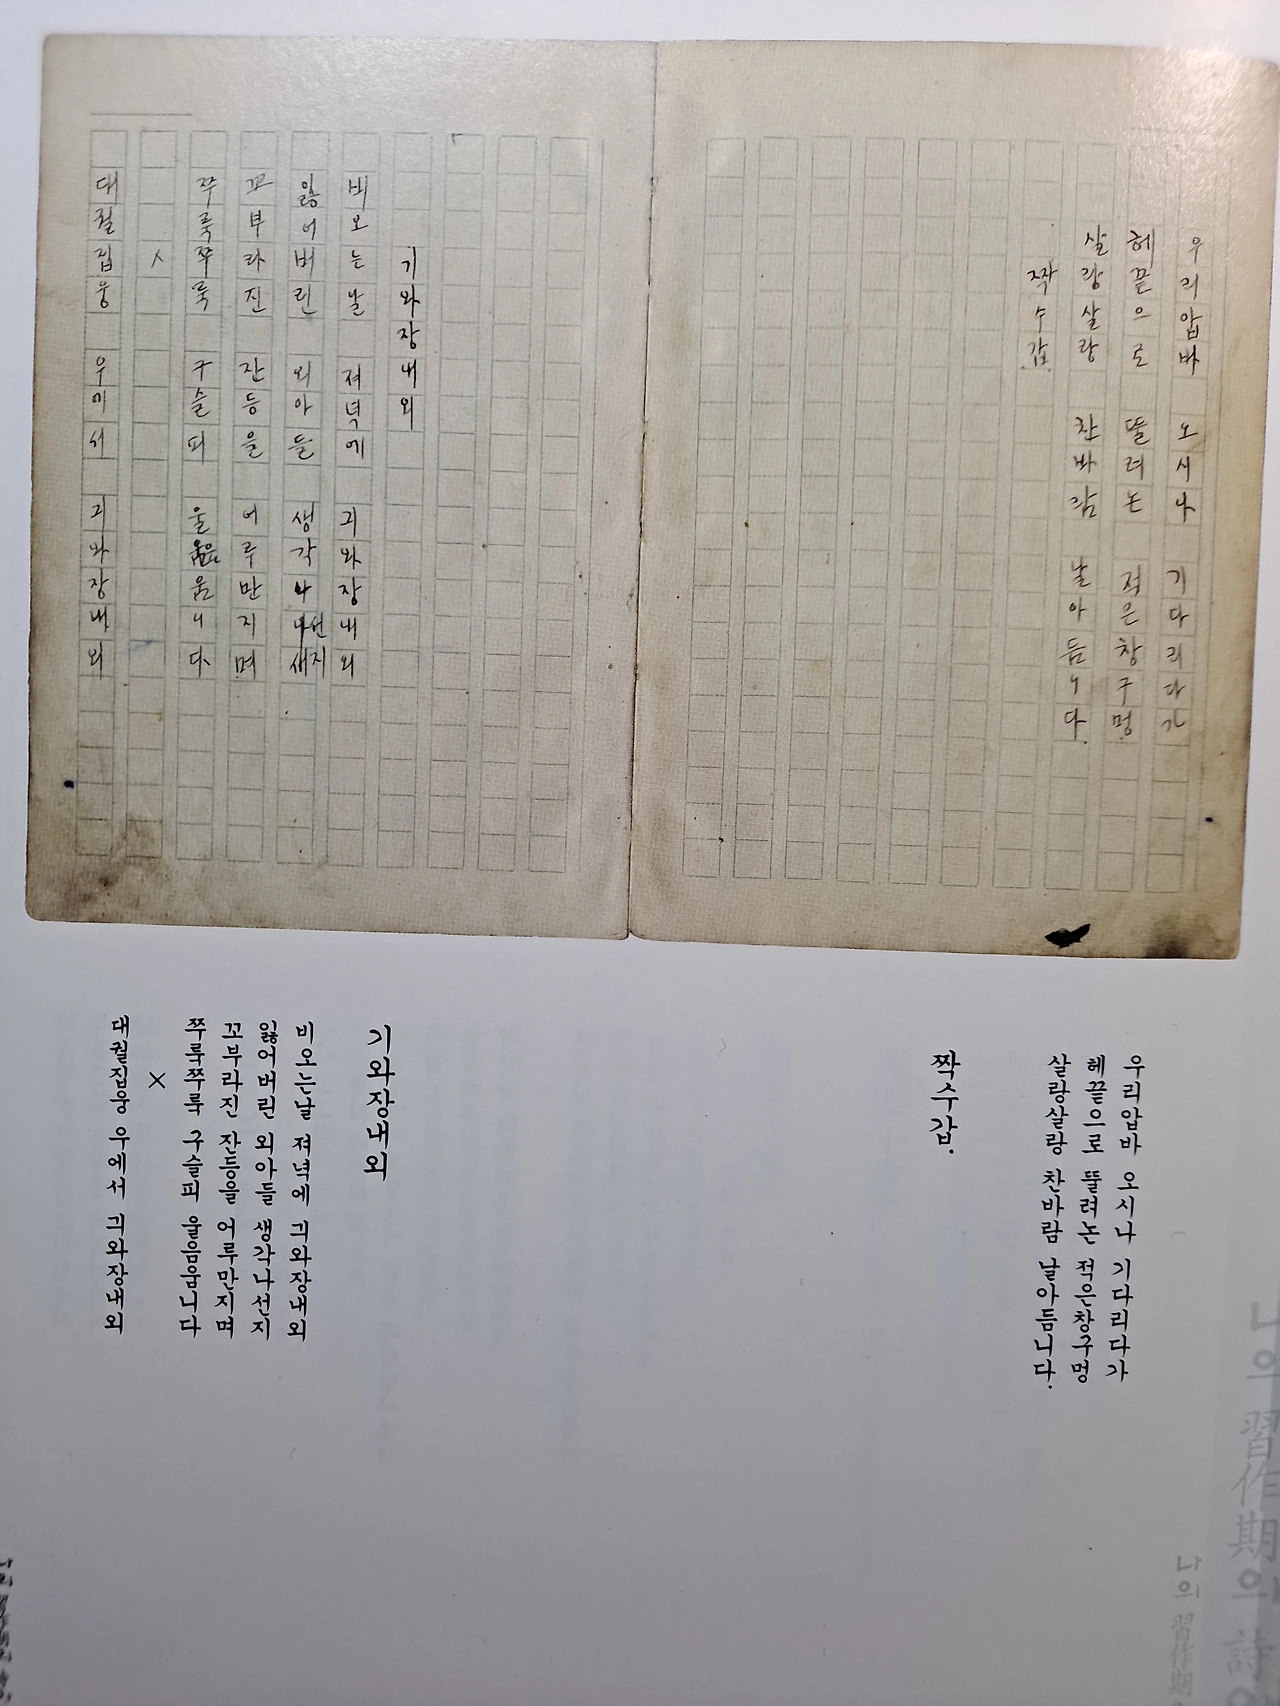 우리압바 오시나 기다리다가
헤끝으로 뚤려논 적은창구멍
살랑살랑 찬바람 날아듬니다.
짝수갑.
기와장내외
비오는날 져녁에 긔와장내외
잃어버린 외아들 생각나선지
꼬부라진 잔등을 어루만지며
쭈룩쭈룩 구슬피 울음움니다
×
대궐집웅 우에서 긔와장내외
우리압바 오시나 기다리다가
헤끝으로 뚤려논 적은창구멍
살랑살랑 찬바람 날아듬니다.
짝수갑.
기와장내외
비오는날 져녁에 긔와장내외
잃어버린 외아들 생각나선지
꼬부라진 잔등을 어루만지며
쭈룩쭈룩 구슬피 울음움니다
×
대궐집웅 우에서 긔와장내외
나의 習作期의 詩
나의 習作期